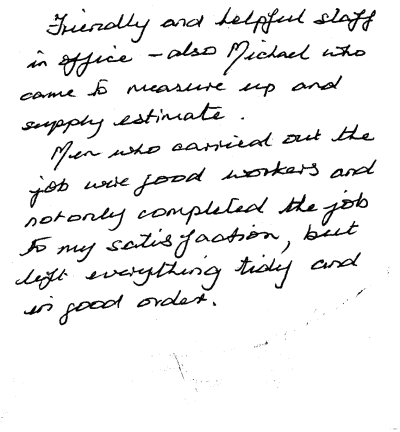 Friendly and helpful staff
in office - also Michael who
came to measure up and
supply estimate.
Men who carried out the
job were good workers and
not only completed the job
to my satisfaction, but
left everything tidy and
in good order.